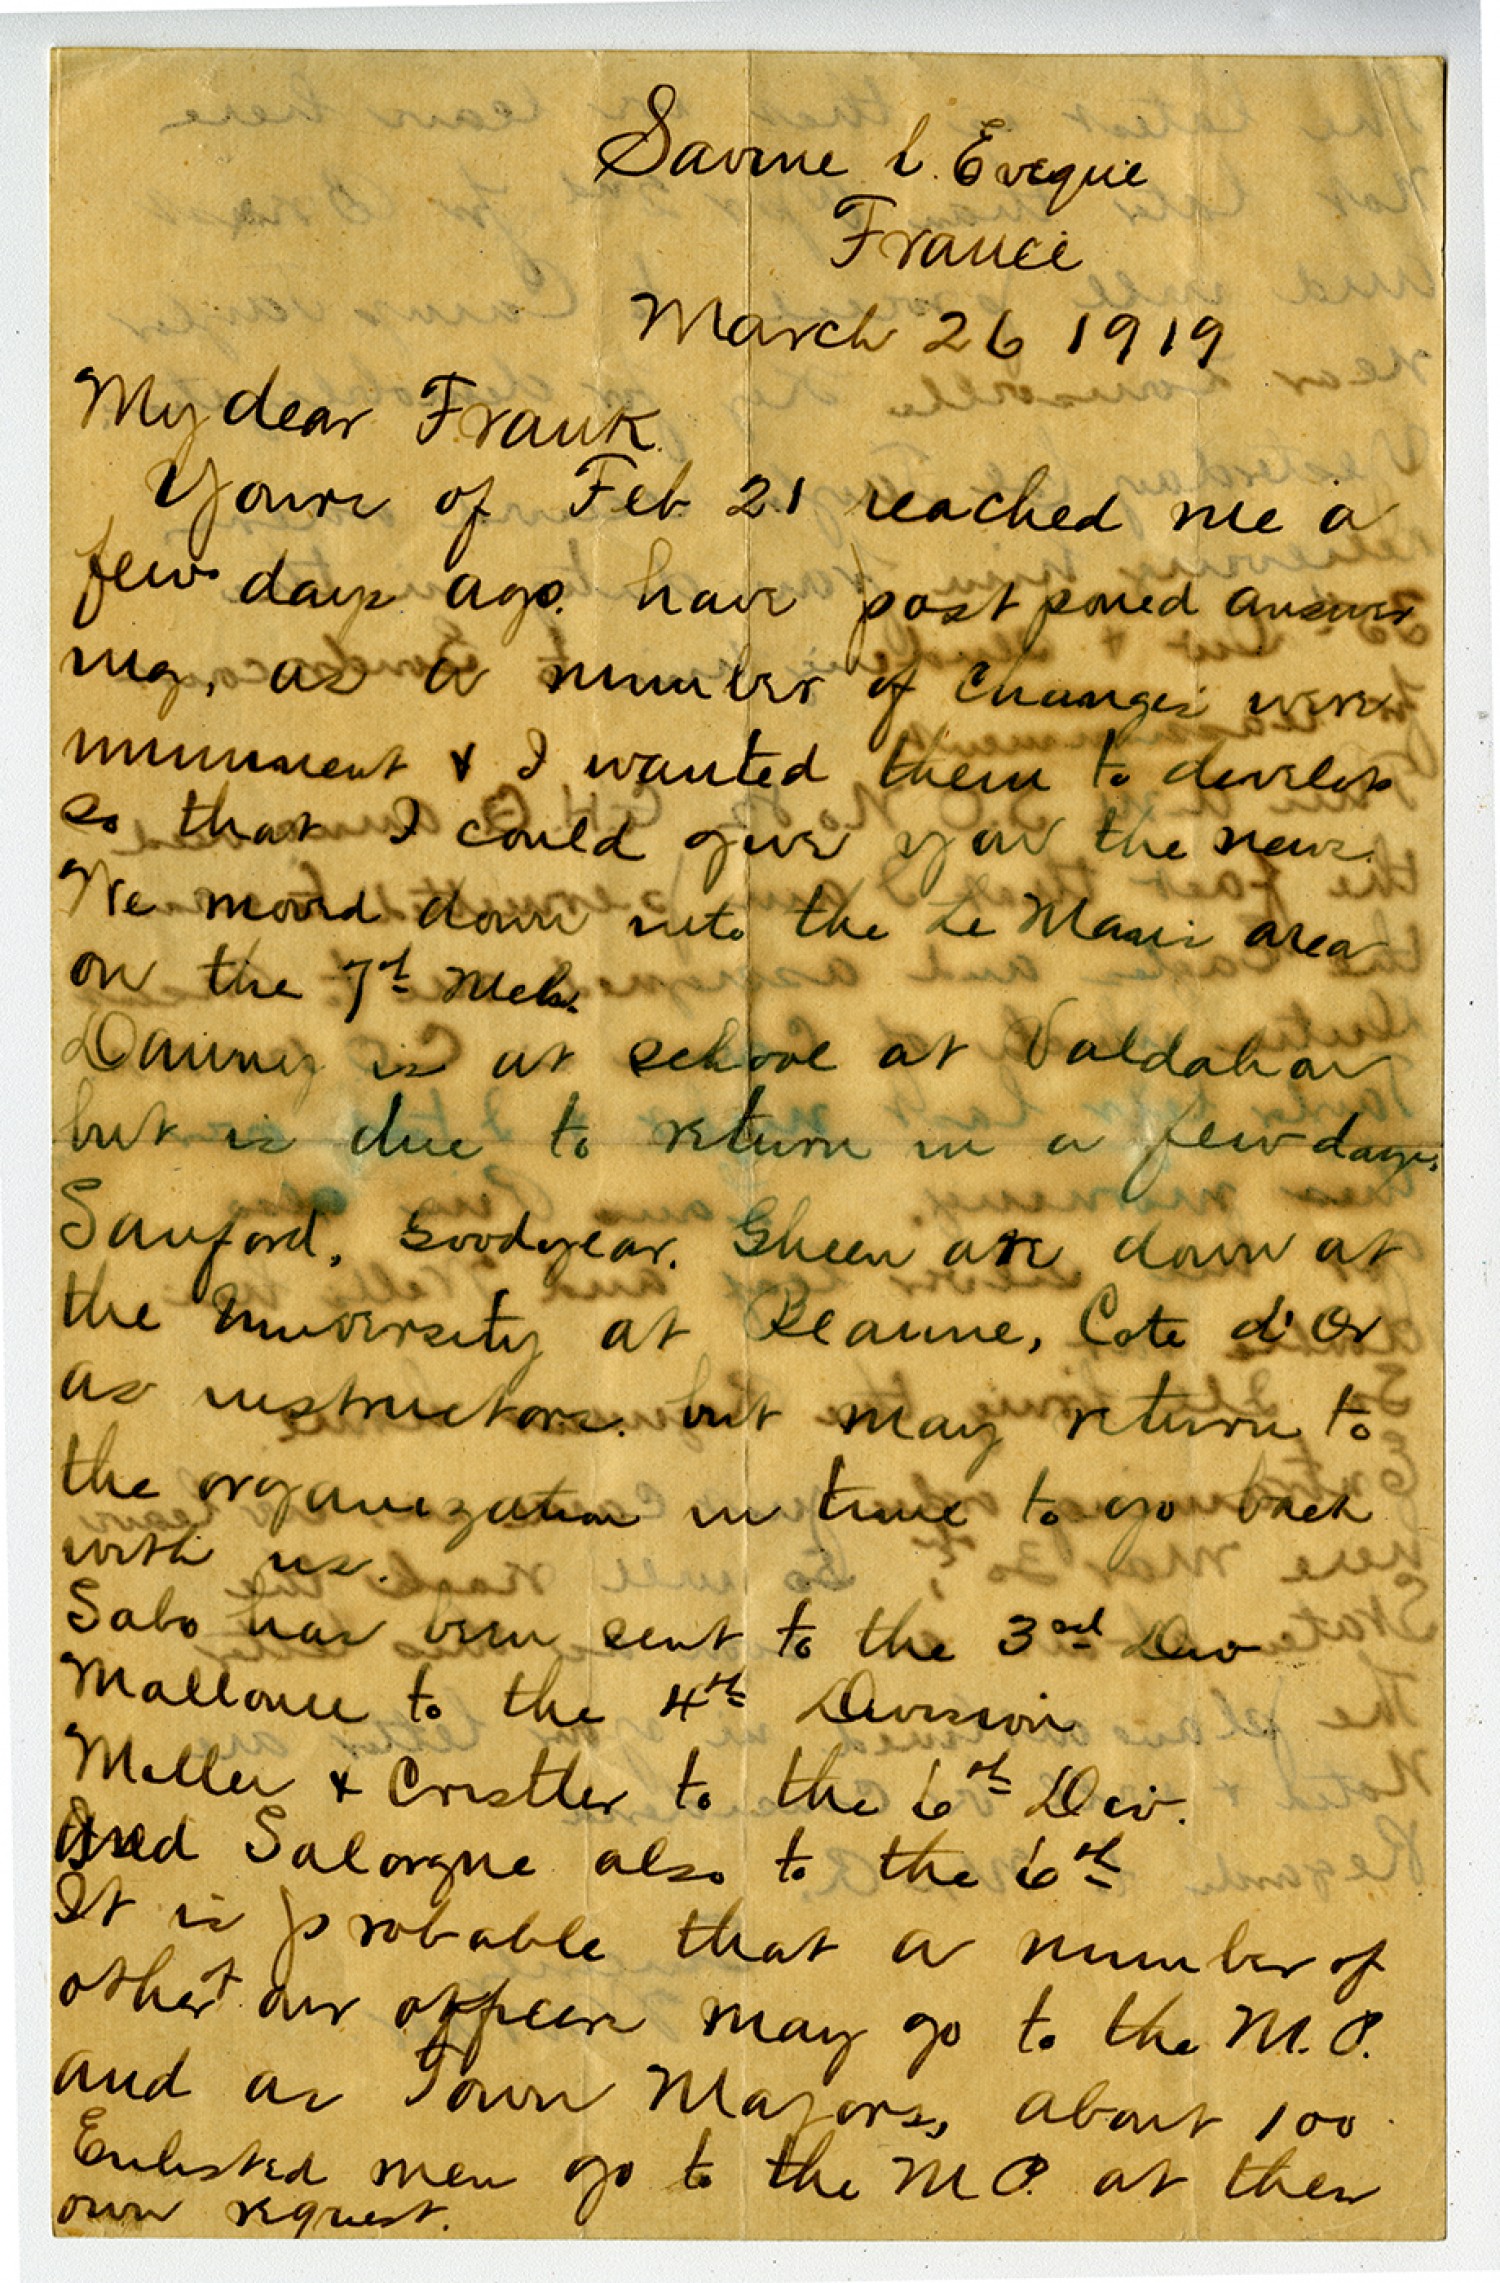 Savine l. Eveque
France
March 26 1919
My dear Frank
Yours of Feb 21 reached me a
few days ago. have postponed answer
ing, as a number of changes were
imminent & I wanted them to develop
so that I could give you the news.
We moved down into the Le Mans area
on the 7th Mch.
is at school at Valdahon
but is due to return in a few days.
Sanford, Goodyear, Gheen are down at
the University at Beaune, Cote d'Or
as instructors. but may return to
the organization in time to go back
with us.
Sabo has been sent to the 3rd Div
Mallonee to the 4th Division
Miller & Cristler to the 6th Div.
and Salorgne also to the 6th
It is probable that a number of
other our officers may go to the M.P.
and as Town Majors, about 100
Enlisted men go to the M.P. at their
own request.